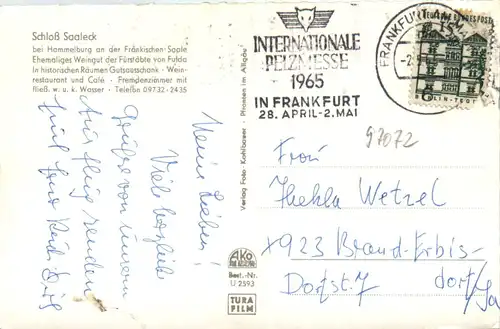 Schloß Saaleck
bei Hammelburg an der Fränkischen Saale
Ehemaliges Weingut der Fürstäbte von Fulda
In historischen Räumen Gutsausschank · Wein-
restaurant und Café · Fremdenzimmer mit
fließ. w. u. k. Wasser · Telefon 09732-2435
Meine Lieben!
Viele herzliche
Grüße von unserem
Ausflug senden
Verlag Foto-Kohlbauer · Pfronten im Allgäu
AKO
Best.-Nr.
U 2593
TURA
FILM
INTERNATIONALE
PELZMESSE
1965
IN FRANKFURT
28. APRIL-2. MAI
FRANKFURT AM
DEUTSCHE BUNDESPOST
BERLIN-TEGEL
97072
Frau
Thekla Wetzel
X923 Brand-Erbis-
dorf/Sa
Dorfstr. 7